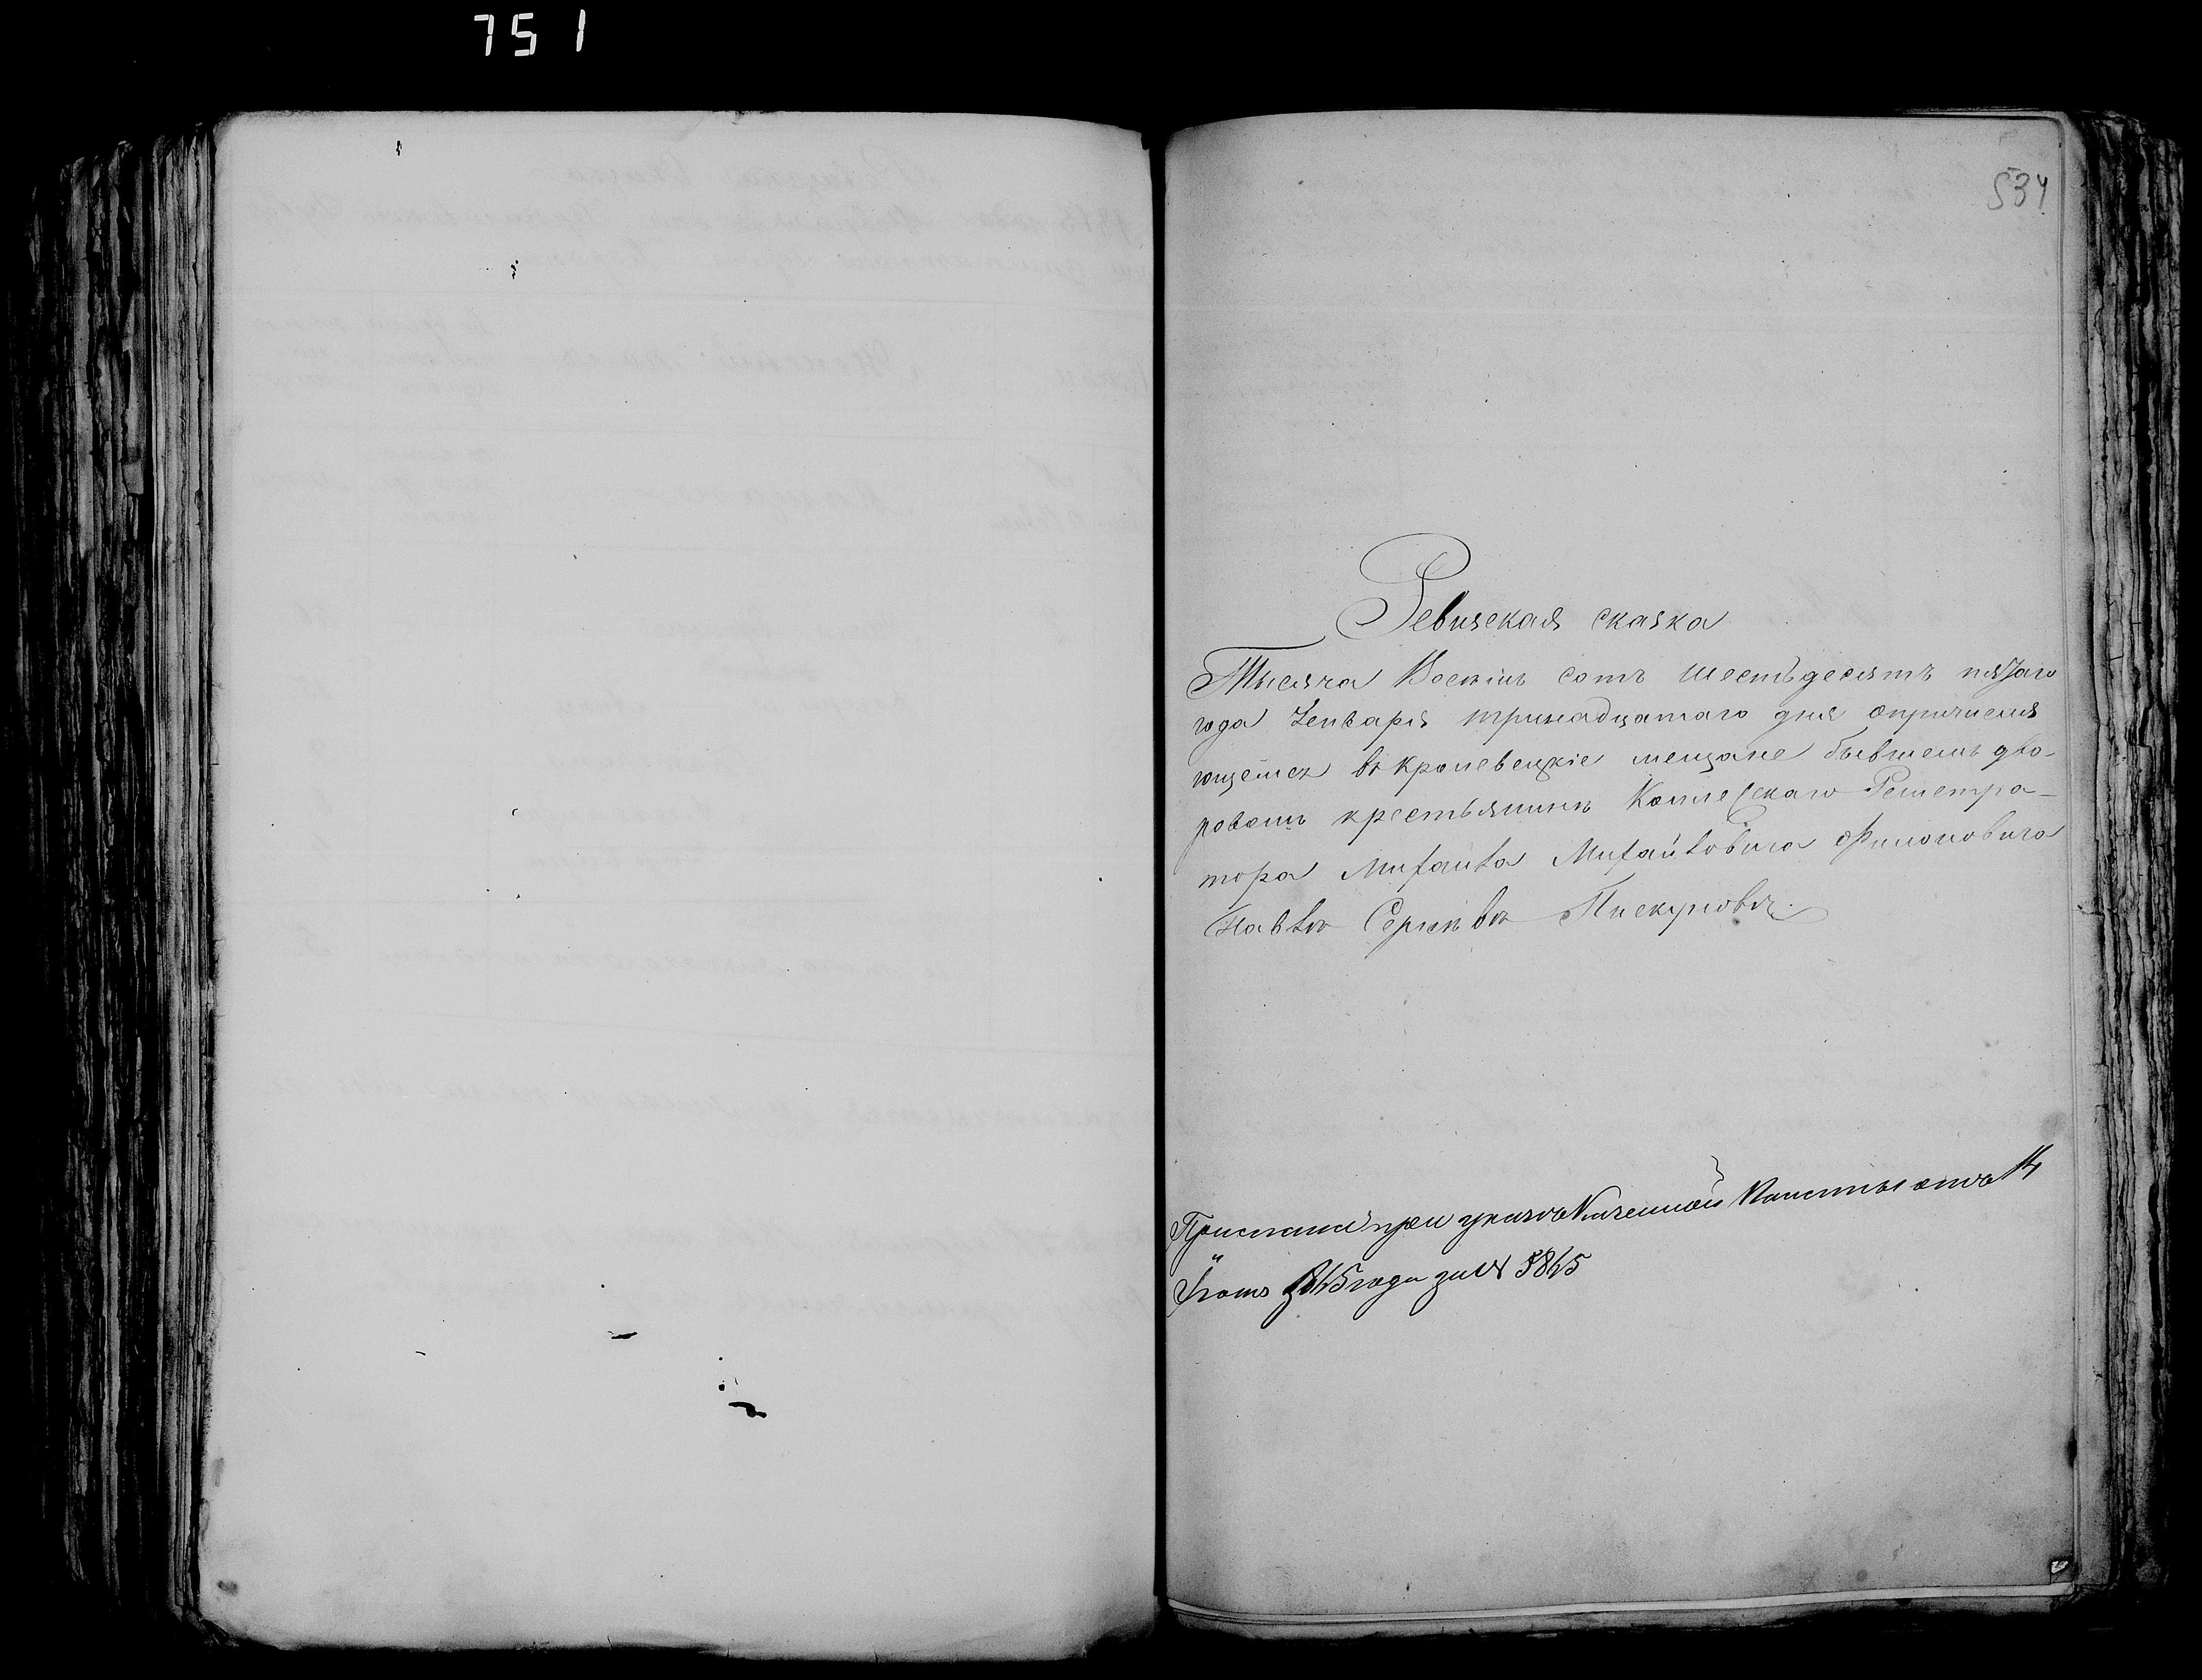 751
534
Ревизская сказка
Тысяча Восемь сотъ шестьдесятъ пятаго
года Генваря тринадцатаго дня опричисля
ющемся въ кролевецкіе мещане бывшемъ дво-
ровомъ крестьянинѣ Коллежскаго Регистра-
тора Михаила Михайловича Филоновича
Павлѣ Сергѣевѣ Пискуновѣ.
Прислана при указѣ Казенной Палаты отъ 14
Іюля 1865 года за № 5865